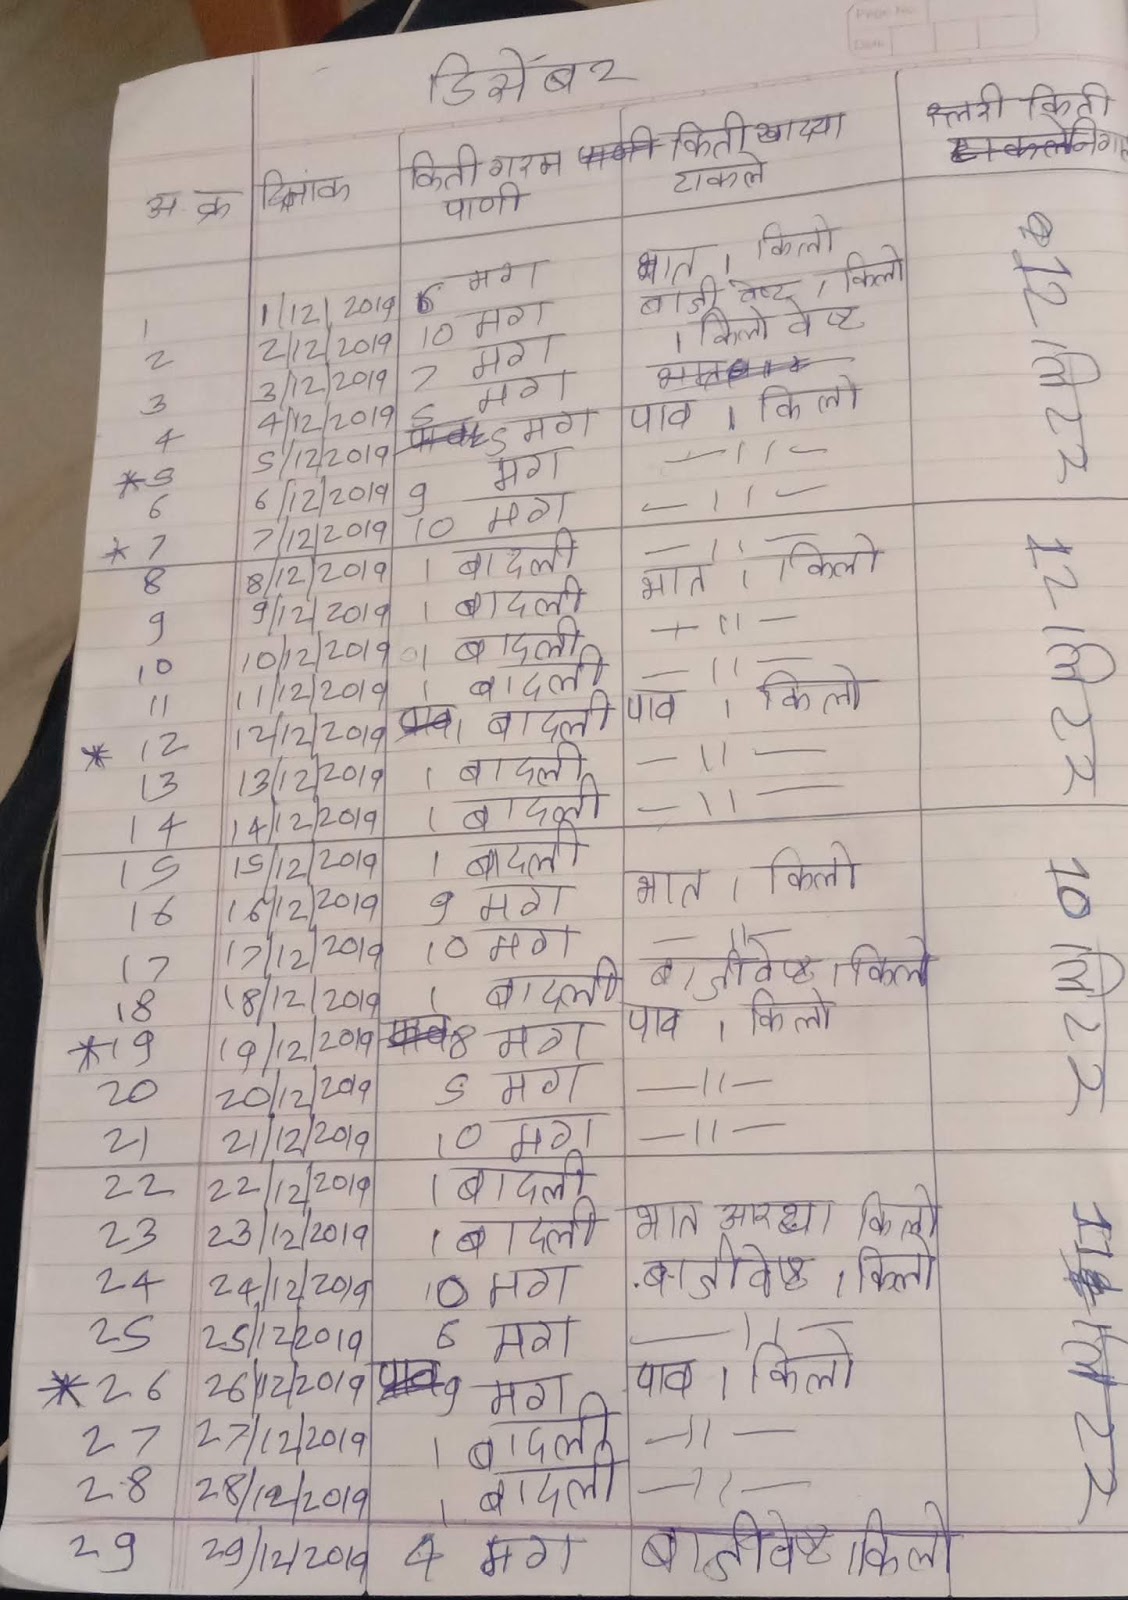 Page No.
Date
डिसेंबर
अ.क्र दिनांक किती गरम पाणी किती खाद्या टाकले स्लरी किती
1 1/12/2019 6 मग भात 1 किलो
2 2/12/2019 10 मग बाजी वेष्ट 1 किलो
3 3/12/2019 7 मग 1 किलो वेष्ट
4 4/12/2019 5 मग
*5 5/12/2019 5 मग पाव 1 किलो
6 6/12/2019 9 मग —11—
*7 7/12/2019 10 मग —11—
12 लि 22
8 8/12/2019 1 बादली —11—
9 9/12/2019 1 बादली भात 1 किलो
10 10/12/2019 1 बादली —11—
11 11/12/2019 1 बादली —11—
*12 12/12/2019 1 बादली पाव 1 किलो
13 13/12/2019 1 बादली —11—
14 14/12/2019 1 बादली —11—
12 लि 22
15 15/12/2019 1 बादली
16 16/12/2019 9 मग भात 1 किलो
17 17/12/2019 10 मग —11—
18 18/12/2019 1 बादली बाजीवेष्ट 1 किलो
*19 19/12/2019 8 मग पाव 1 किलो
20 20/12/2019 5 मग —11—
21 21/12/2019 10 मग —11—
10 लि 22
22 22/12/2019 1 बादली
23 23/12/2019 1 बादली भात आरधा किलो
24 24/12/2019 10 मग बाजीवेष्ट 1 किलो
25 25/12/2019 6 मग —11—
*26 26/12/2019 9 मग पाव 1 किलो
27 27/12/2019 1 बादली —11—
28 28/12/2019 1 बादली —11—
11 लि 22
29 29/12/2019 4 मग बाजीवेष्ट 1 किलो